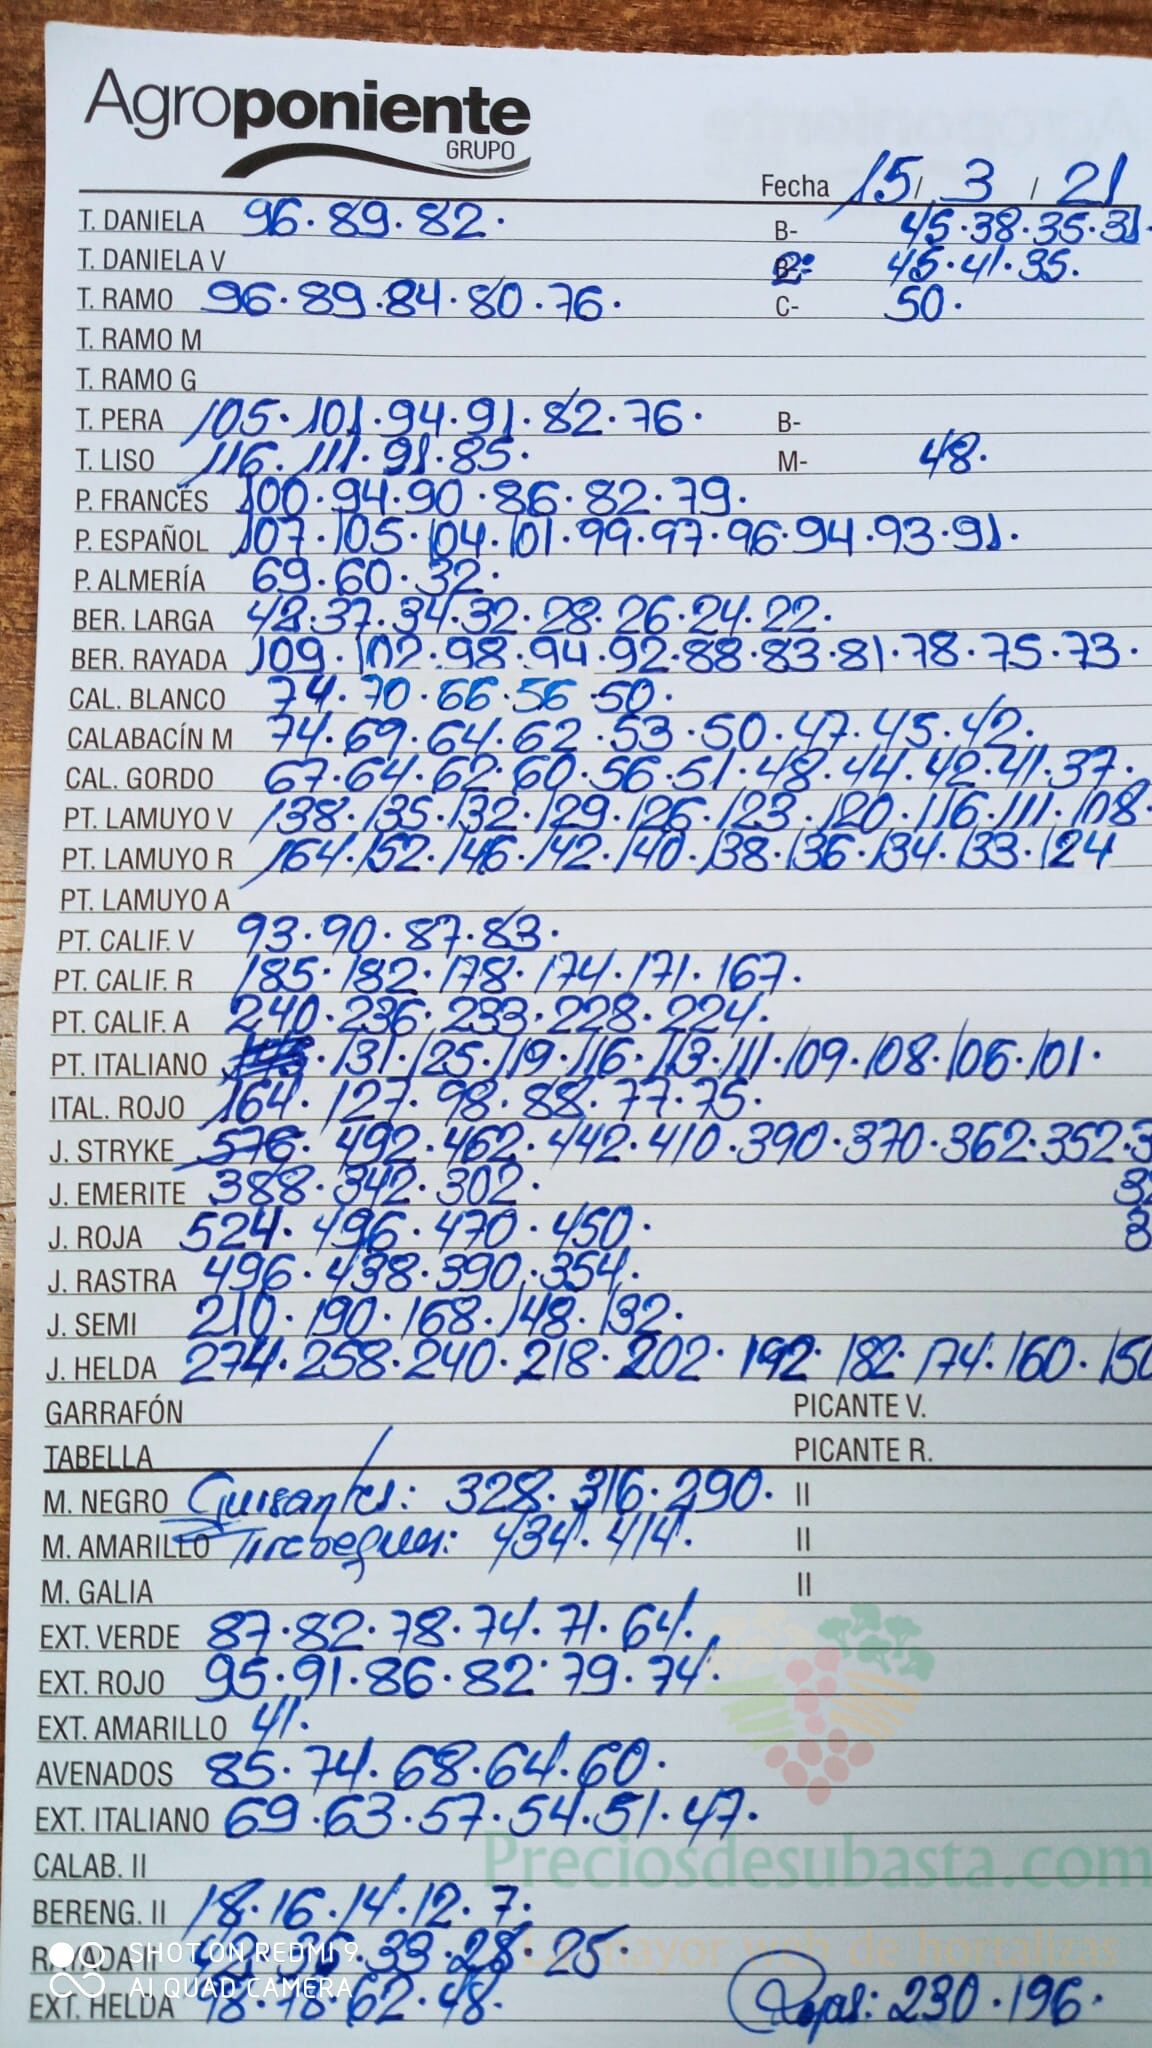 Agroponiente
GRUPO
Fecha 15/ 3 / 21
T. DANIELA 96·89·82· B- 45·38·35·31·
T. DANIELA V 2ª: 45·41·35·
T. RAMO 96·89·84·80·76· C- 50·
T. RAMO M
T. RAMO G
T. PERA 105·101·94·91·82·76· B-
T. LISO 116·111·91·85· M- 48·
P. FRANCÉS 100·94·90·86·82·79·
P. ESPAÑOL 107·105·104·101·99·97·96·94·93·91·
P. ALMERÍA 69·60·32·
BER. LARGA 42·37·34·32·28·26·24·22·
BER. RAYADA 109·102·98·94·92·88·83·81·78·75·73·
CAL. BLANCO 74·70·66·56·50·
CALABACÍN M 74·69·64·62·53·50·47·45·42·
CAL. GORDO 67·64·62·60·56·51·48·44·42·41·37·
PT. LAMUYO V 138·135·132·129·126·123·120·116·111·108·
PT. LAMUYO R 164·152·146·142·140·138·136·134·133·124
PT. LAMUYO A
PT. CALIF. V 93·90·87·83·
PT. CALIF. R 185·182·178·174·171·167·
PT. CALIF. A 240·236·233·228·224·
PT. ITALIANO ·131·125·119·116·113·111·109·108·106·101·
ITAL. ROJO 164·127·98·88·77·75·
J. STRYKE 576·492·462·442·410·390·370·362·352·3
J. EMERITE 388·342·302· 32
J. ROJA 524·496·470·450· 3
J. RASTRA 496·438·390·354·
J. SEMI 210·190·168·148·132·
J. HELDA 274·258·240·218·202·192·182·174·160·150
GARRAFÓN PICANTE V.
TABELLA PICANTE R.
M. NEGRO Guisantes: 328·316·290· II
M. AMARILLO Tirabeques: 434·414· II
M. GALIA II
EXT. VERDE 87·82·78·74·71·64·
EXT. ROJO 95·91·86·82·79·74·
EXT. AMARILLO 41·
AVENADOS 85·74·68·64·60·
EXT. ITALIANO 69·63·57·54·51·47·
Preciosdesubasta.com
CALAB. II
BERENG. II 18·16·14·12·7·
RAYADA II 36·33·28·25·
La mayor web de hortalizas
SHOT ON REDMI 9
AI QUAD CAMERA
EXT. HELDA 78·62·48· Rojas: 230·196·